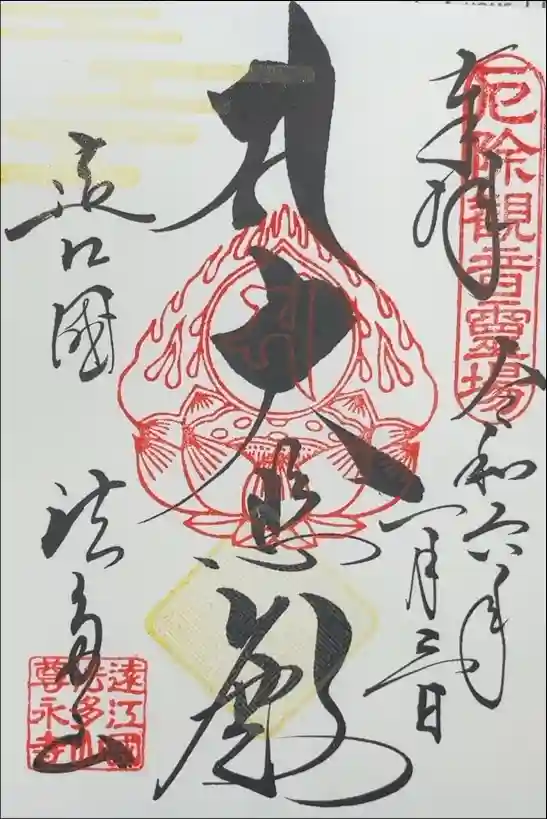 奉拝
厄除観音霊場
令和六年
一月三日
大悲殿
遠江國
法多山
遠江國
法多山
尊永寺